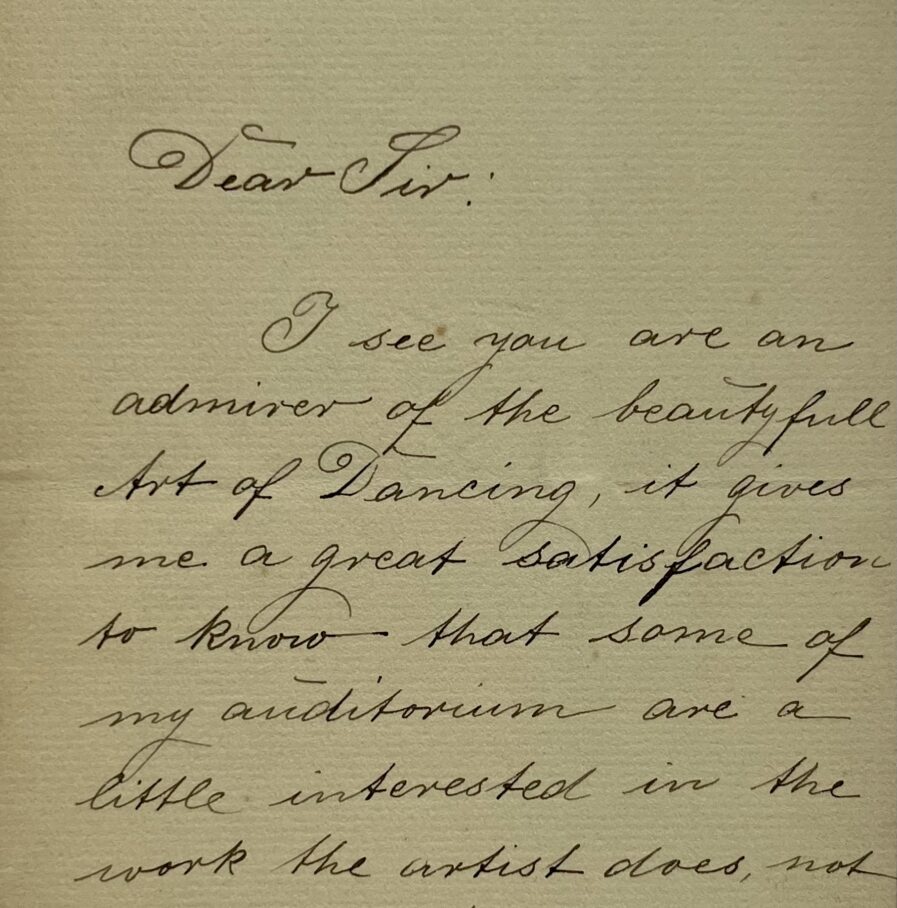 Dear Sir:
I see you are an
admirer of the beautyfull
Art of Dancing, it gives
me a great satisfaction
to know that some of
my auditorium are a
little interested in the
work the artist does, not